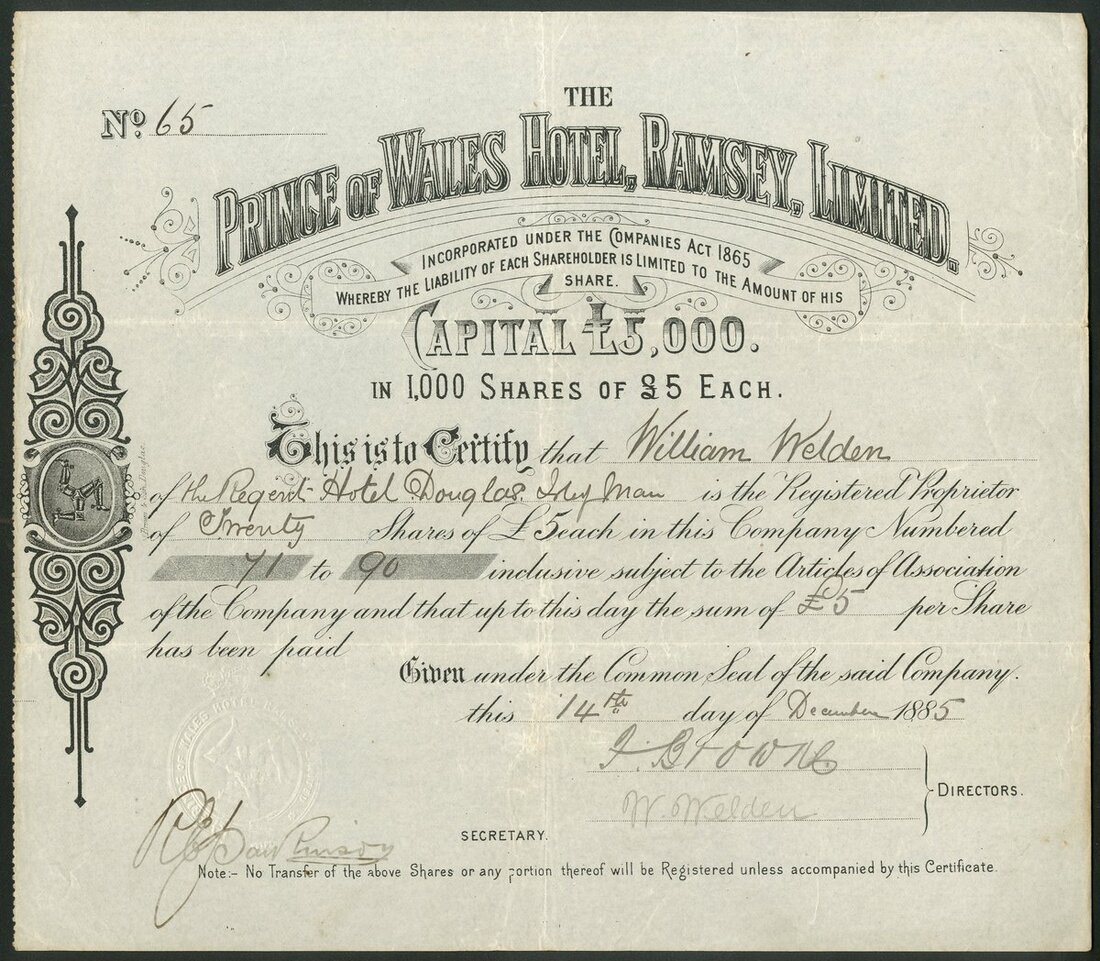 No. 65
THE
PRINCE OF WALES HOTEL, RAMSEY, LIMITED.
INCORPORATED UNDER THE COMPANIES ACT 1865
WHEREBY THE LIABILITY OF EACH SHAREHOLDER IS LIMITED TO THE AMOUNT OF HIS
SHARE.
CAPITAL £5,000.
IN 1,000 SHARES OF £5 EACH.
This is to Certify that William Welden
of the Regent Hotel Douglas. Isle of Man is the Registered Proprietor
of Twenty Shares of £5 each in this Company Numbered
71 to 90 inclusive subject to the Articles of Association
of the Company and that up to this day the sum of £5 per Share
has been paid
Given under the Common Seal of the said Company.
this 14th day of December 1885
J. Browne
W. Welden
DIRECTORS.
SECRETARY.
Note:- No Transfer of the above Shares or any portion thereof will be Registered unless accompanied by this Certificate.